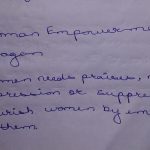 oman Empowerme
logan
omen needs praises,
pression or suppre
urish women by em
them.